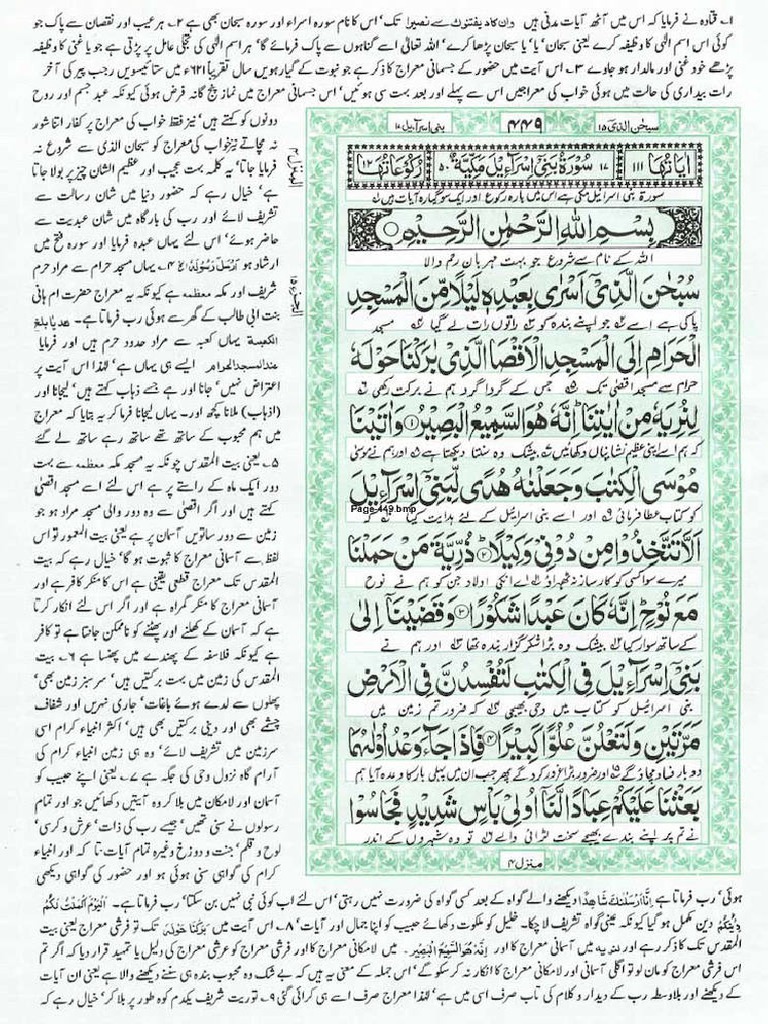 ۱۔ قتادہ نے فرمایا کہ اس میں آٹھ آیات مدنی ہیں وان کادیفتنونک سے نصیرا تک' اس کا نام سورہ اسراء اور سورہ سبحان بھی ہے ۲۔ ہر عیب اور نقصان سے پاک جو
کوئی اس اسم الٰہی کا وظیفہ کرے یعنی سبحان 'یا' یا سبحان پڑھا کرے' اللہ تعالٰی اسے گناہوں سے پاک فرمائے گا' ہر اسم الٰہی کی تجلی عامل پر پڑتی ہے جو یا غنی کا وظیفہ
پڑھے خود غنی اور مالدار ہو جاوے ۳۔ اس آیت میں حضور کے جسمانی معراج کا ذکر ہے جو نبوت کے گیارہویں سال تقریباً ۶۲۱ء میں ستائیسویں رجب پیر کی آخر
رات بیداری کی حالت میں ہوئی خواب کی معراجیں اس سے پہلے اور بعد بہت سی ہوئیں' اس جسمانی معراج میں نماز پنج گانہ فرض ہوئی کیونکہ عبد جسم اور روح
سبحٰن الذی ۱۵
۴۴۹
بنی اسرآءیل ۱۷
اٰیَاتُهَا ۱۱۱
۱۷ سُوْرَةُ بَنِیْٓ اِسْرَآءِیْلَ مَکِّیَّةٌ ۵۰
رُکُوْعَاتُهَا ۱۲
سورۃ بنی اسرائیل مکی ہے اس میں بارہ رکوع اور ایک سو گیارہ آیات ہیں
بِسْمِ اللّٰهِ الرَّحْمٰنِ الرَّحِیْمِ
اللہ کے نام سے شروع جو بہت مہربان رحم والا
سُبْحٰنَ الَّذِیْٓ اَسْرٰی بِعَبْدِهٖ لَیْلًا مِّنَ الْمَسْجِدِ
پاکی ہے اسے جو اپنے بندہ کو راتوں رات لے گیا مسجد
الْحَرَامِ اِلَی الْمَسْجِدِ الْاَقْصَا الَّذِیْ بٰرَكْنَا حَوْلَهٗ
حرام سے مسجد اقصیٰ تک جس کے گردا گرد ہم نے برکت رکھی
لِنُرِیَهٗ مِنْ اٰیٰتِنَا ؕ اِنَّهٗ هُوَ السَّمِیْعُ الْبَصِیْرُ ۱ وَاٰتَیْنَا
کہ ہم اسے اپنی عظیم نشانیاں دکھائیں بیشک وہ سنتا دیکھتا ہے اور ہم نے موسیٰ
مُوْسَی الْكِتٰبَ وَجَعَلْنٰهُ هُدًی لِّبَنِیْٓ اِسْرَآءِیْلَ
Page-449.bmp
کو کتاب عطا فرمائی اور اسے بنی اسرائیل کے لئے ہدایت کیا کہ
اَلَّا تَتَّخِذُوْا مِنْ دُوْنِیْ وَكِیْلًا ۲ ذُرِّیَّةَ مَنْ حَمَلْنَا
میرے سوا کسی کو کارساز نہ ٹھہراؤ اے انکی اولاد جن کو ہم نے نوح
مَعَ نُوْحٍ ؕ اِنَّهٗ كَانَ عَبْدًا شَكُوْرًا ۳ وَقَضَیْنَآ اِلٰی
کے ساتھ سوار کیا بیشک وہ بڑا شکر گزار بندہ تھا اور ہم نے
بَنِیْٓ اِسْرَآءِیْلَ فِی الْكِتٰبِ لَتُفْسِدُنَّ فِی الْاَرْضِ
بنی اسرائیل کو کتاب میں وحی بھیجی کہ ضرور تم زمین میں
مَرَّتَیْنِ وَلَتَعْلُنَّ عُلُوًّا كَبِیْرًا ۴ فَاِذَا جَآءَ وَعْدُ اُوْلٰىهُمَا
دو بار فساد مچاؤ گے اور ضرور بڑا غرور کرو گے پھر جب ان میں پہلی بار کا وعدہ آیا ہم
بَعَثْنَا عَلَیْكُمْ عِبَادًا لَّنَآ اُولِیْ بَاْسٍ شَدِیْدٍ فَجَاسُوْا
نے تم پر اپنے بندے بھیجے سخت لڑائی والے تو وہ شہروں کے اندر
منزل ۴
المنزل ۴
الجزء ۱۵
دونوں کو کہتے ہیں' نیز فقط خواب کی معراج پر کفار اتنا شور
نہ مچاتے نیز خواب کی معراج کو سبحان الذی سے شروع نہ
فرمایا جاتا' یہ کلمہ بہت عجیب اور عظیم الشان چیز پر بولا جاتا
ہے' خیال رہے کہ حضور دنیا میں شان رسالت سے
تشریف لائے اور رب کی بارگاہ میں شان عبدیت سے
حاضر ہوئے' اس لئے یہاں عبدہ فرمایا اور سورہ فتح میں
ارشاد ہوا اَرْسَلَ رَسُوْلَهٗ ۴۔ یہاں مسجد حرام سے مراد حرم
شریف اور مکہ معظمہ ہے کیونکہ یہ معراج حضرت ام ہانی
بنت ابی طالب کے گھر سے ہوئی رب فرماتا ہے۔ هدیا بلغ
الکعبة یہاں کعبہ سے مراد حدود حرم ہیں اور فرمایا
عندالمسجدالحرام ایسے ہی یہاں ہے' لہٰذا اس آیت پر
اعتراض نہیں' جانا اور ہے جسے ذہاب کہتے ہیں' لیجانا اور
(اذہاب) ملانا کچھ اور۔ یہاں لیجانا فرما کر یہ بتایا کہ معراج
میں ہم محبوب کے ساتھ تھے ساتھ رہے ساتھ لے گئے
۵۔ یعنی بیت المقدس چونکہ یہ مسجد مکہ معظمہ سے بہت
دور ایک ماہ کے راستے پر ہے اس لئے اسے مسجد اقصیٰ
کہتے ہیں اور اگر اقصیٰ سے وہ دور والی مسجد مراد ہو جو
زمین سے دور ساتویں آسمان پر ہے یعنی بیت المعمور تو اس
لفظ سے آسمانی معراج کا ثبوت ہو گا' خیال رہے کہ بیت
المقدس تک معراج قطعی یقینی ہے اس کا منکر کافر ہے اور
آسمانی معراج کا منکر گمراہ ہے اور اگر اس لئے انکار کرتا
ہے کہ آسمان کے کھلنے اور پھٹنے کو ناممکن جانتا ہے تو کافر
ہے کیونکہ فلاسفہ کے پھندے میں پھنسا ہے ۶۔ بیت
المقدس کی زمین میں بہت برکتیں ہیں' سرسبز زمین بھی'
پھلوں سے لدے ہوئے باغات' جاری نہریں اور شفاف
چشمے بھی اور دینی برکتیں بھی ہیں' اکثر انبیاء کرام اسی
سرزمین میں تشریف لائے' وہ ہی زمین انبیاء کرام کی
آرام گاہ نزول وحی کی جگہ ہے ۷۔ یعنی اپنے حبیب کو
آسمان اور لامکان میں بلا کر وہ آیتیں دکھائیں جو اور تمام
رسولوں نے سنی تھیں' جیسے رب کی ذات' عرش و کرسی'
لوح و قلم' جنت و دوزخ وغیرہ تمام آیات تا کہ اور انبیاء
کرام کی گواہی سنی ہوئی ہو اور حضور کی گواہی دیکھی
ہوئی' رب فرماتا ہے اِنَّآ اَرْسَلْنٰكَ شَاهِدًا دیکھنے والے گواہ کے بعد کسی گواہ کی ضرورت نہیں رہتی' اس لئے اب کوئی نبی نہیں بن سکتا' رب فرماتا ہے۔ اَلْیَوْمَ اَكْمَلْتُ لَكُمْ
دِیْنَكُمْ دین مکمل ہو گیا کیونکہ عینی گواہ تشریف لا چکا۔ خلیل کو ملکوت دکھائے حبیب کو اپنا جمال اور آیات' ۸۔ اس آیت میں بٰرَكْنَا حَوْلَهٗ تک تو فرشی معراج یعنی بیت
المقدس تک کا ذکر ہے اور لنریہ میں آسمانی معراج کا اور اِنَّهٗ هُوَ السَّمِیْعُ الْبَصِیْرُ۔ میں لامکانی معراج کا اور فرشی معراج کو عرشی معراج کی دلیل یا تمہید قرار دیا کہ اگر تم
اس فرشی معراج کو مان لو تو اگلی آسمانی اور لامکانی معراج کا انکار نہ کر سکو گے' اس جملہ کے معنی یہ ہیں کہ بے شک وہ محبوب بندہ ہی سننے دیکھنے والا ہے یعنی ان آیات
کے دیکھنے اور بلاوسطہ رب کے دیدار و کلام کی تاب صرف اسی میں ہے' لہٰذا معراج صرف اسے ہی کرائی گئی ۹۔ توریت شریف یکدم کوہ طور پر بلا کر' خیال رہے کہ